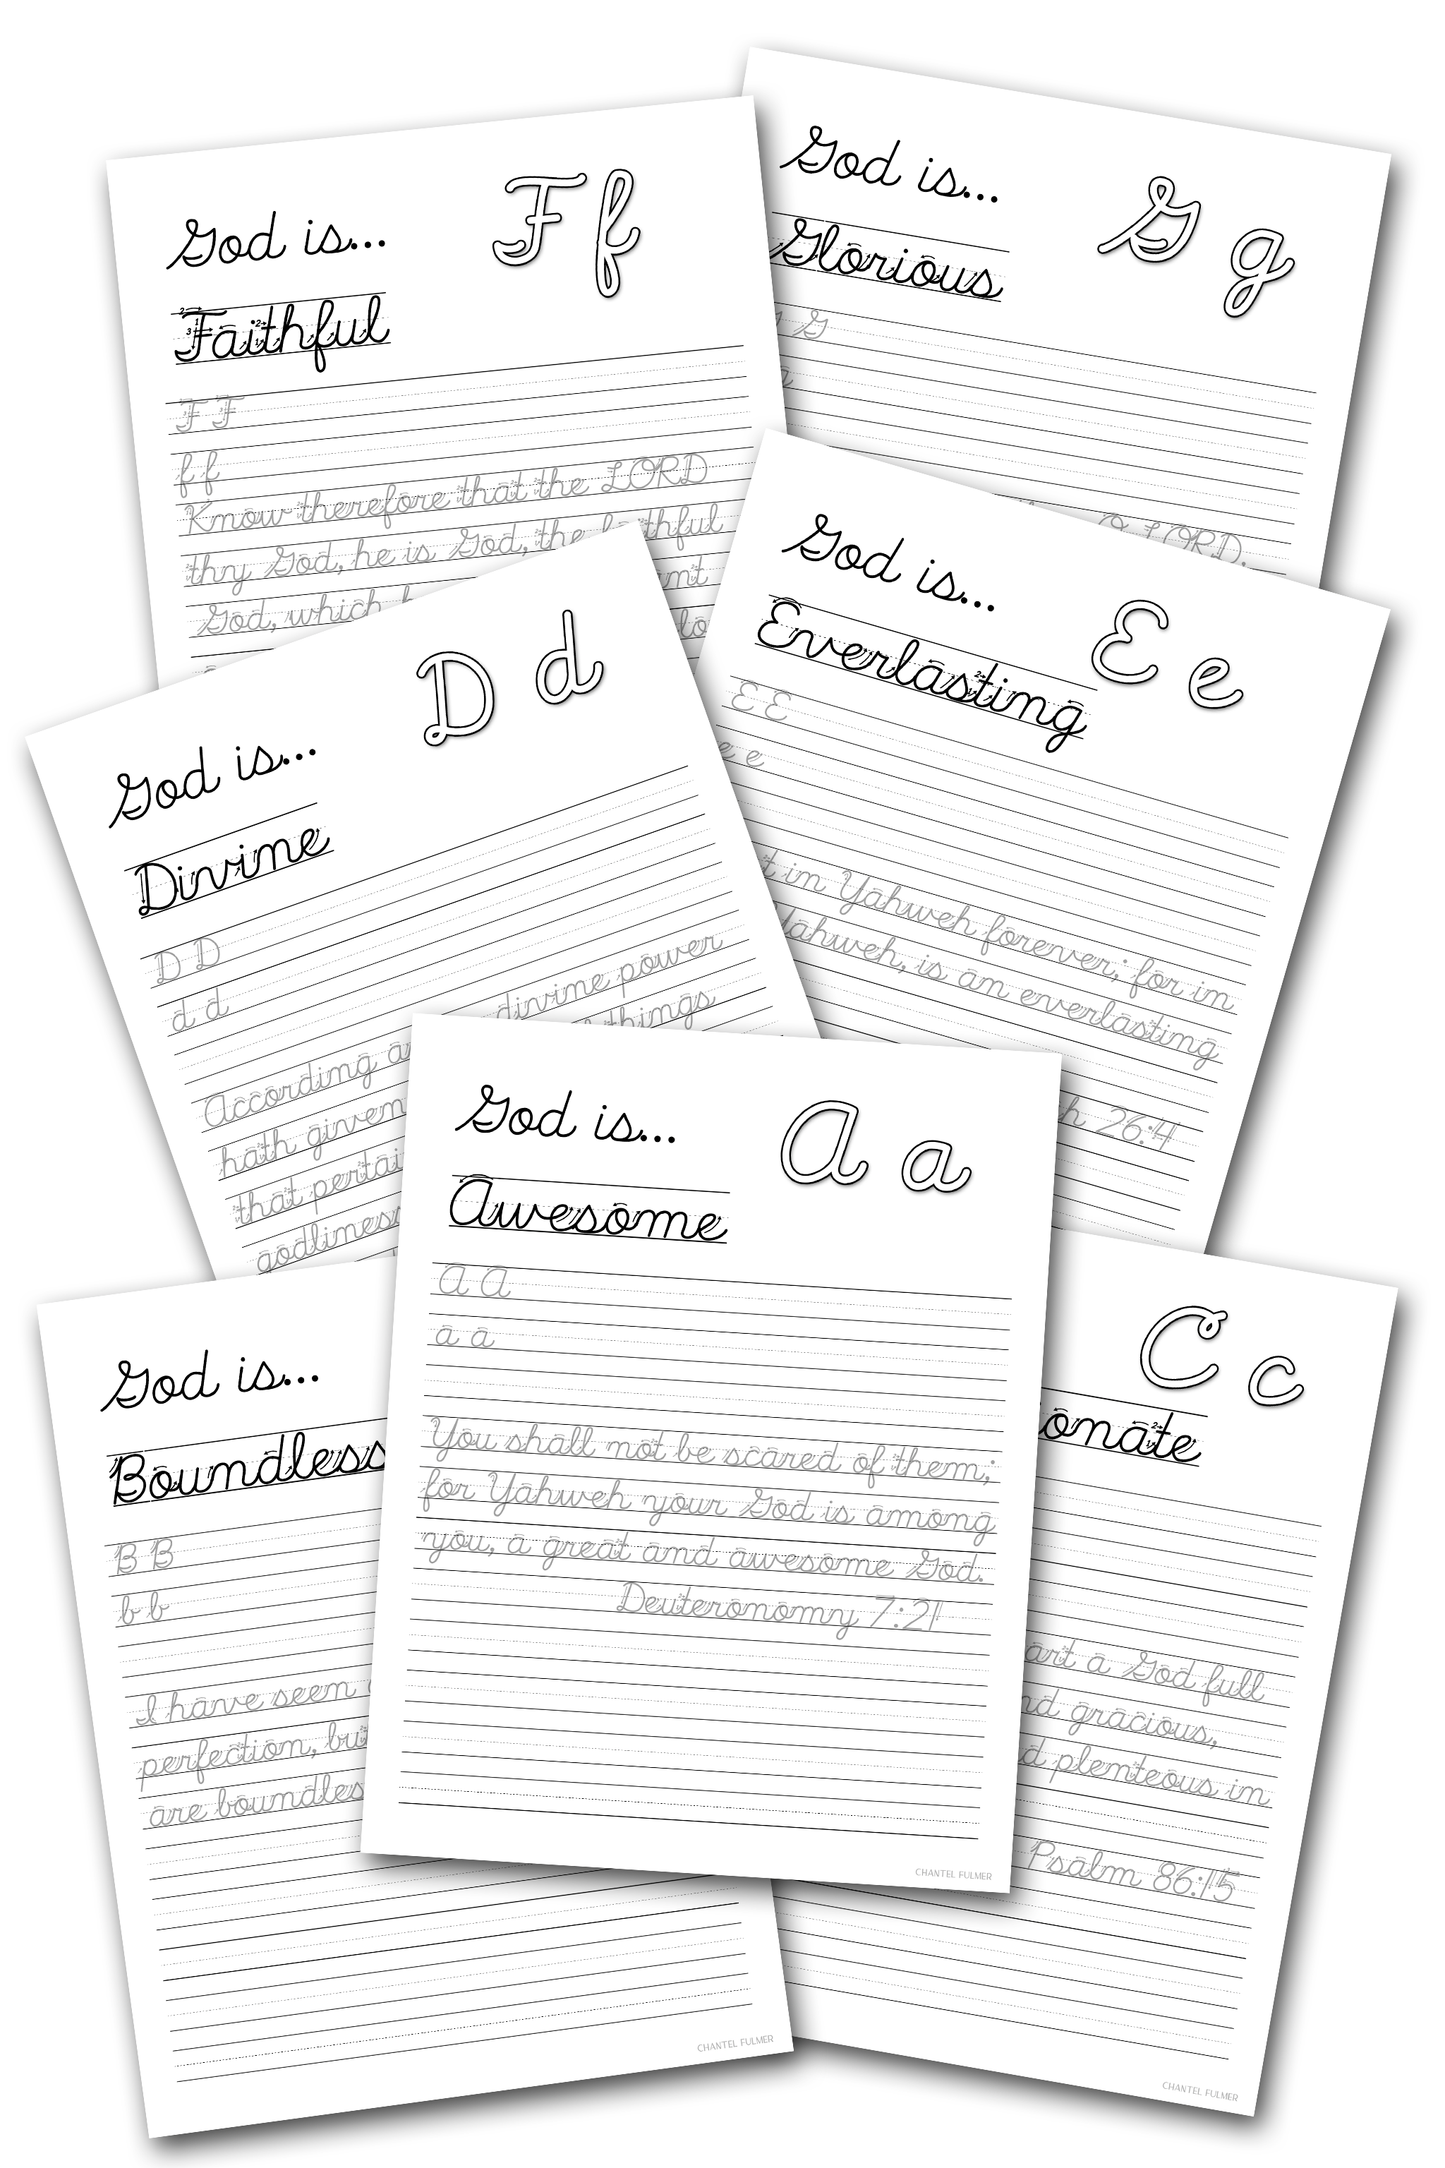 God is...
F f
Faithful
F F
f f
Know therefore that the LORD
thy God, he is God, the faithful
God, which
God is...
G g
Glorious
G
g
LORD,
God is...
D d
Divine
D D
d d
According divine power
hath given things
that
godliness
God is...
E e
Everlasting
E E
e e
in Yahweh forever; for in
Yahweh, is an everlasting
26:4
God is...
A a
Awesome
A A
a a
You shall not be scared of them;
for Yahweh your God is among
you, a great and awesome God.
Deuteronomy 7:21
CHANTEL FULMER
God is...
Boundless
B B
b b
I have seen
perfection, but
are boundless
CHANTEL FULMER
C c
onate
art a God full
gracious,
plenteous in
Psalm 86:15
CHANTEL FULMER